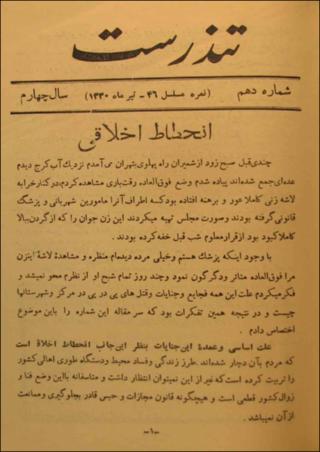 تندرست
شماره دهم
(نمره مسلسل ۴۶ – تیر ماه ۱۳۳۰)
سال چهارم
انحطاط اخلاقی
چندی قبل صبح زود از شمیران راه پهلوی بتهران می‌آمدم نزدیک آب کرج دیدم
عده‌ای جمع شده‌اند پیاده شدم وضع فوق‌العاده رقت‌باری مشاهده کردم، در کنار خرابه
لاشه زنی کاملا عور و برهنه افتاده بود که اطراف آنرا مامورین شهربانی و پزشک
قانونی گرفته بودند وصورت مجلس تهیه میکردند این زن جوان را که از گردن ببالا
کاملا کبود بود از قرار معلوم شب قبل خفه کرده بودند.
با وجود اینکه پزشک هستم وخیلی مرده دیده‌ام منظره و مشاهدة لاشة اینزن
مرا فوق‌العاده متاثر ودگرگون نمود وچند روز تمام شبح او از نظرم محو نمیشد و
فکر میکردم علت این همه فجایع و جنایات وقتل های پی در پی در مرکز وشهرستانها
چیست و در نتیجه همین تفکرات بود که سر مقاله این شماره را باین موضوع
اختصاص دادم.
علت اساسی وعمدة این جنایات بنظر این جانب انحطاط اخلاق است
که مردم بآن دچار شده‌اند. طرز زندگی وفساد محیط ودستگاه طوری اهالی کشور
را تربیت کرده است که غیر از این نمیتوان انتظار داشت و متاسفانه با این وضع فنا و
زوال کشور قطعی است و هیچگونه قانون مجازات و حبس قادر بجلوگیری وممانعت
از آن نمیباشد.
-۱-